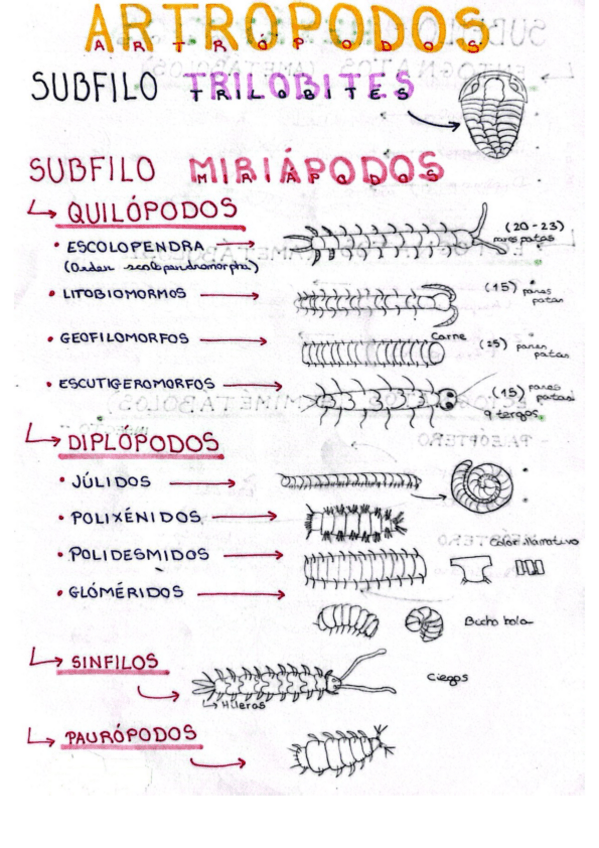 ARTRÓPODOS
SUBFILO TRILOBITES
SUBFILO MIRIÁPODOS
QUILÓPODOS
• ESCOLOPENDRA
(Orden scolopendromorpha)
(20-23)
pares patas
• LITOBIOMORMOS
(15) pares
patas
• GEOFILOMORFOS
Carne
(25) pares
patas
• ESCUTIGEROMORFOS
(15) pares
patas
9 tergos
DIPLÓPODOS
• JÚLIDOS
• POLIXÉNIDOS
• POLIDESMIDOS
Color llamativo
• GLÓMÉRIDOS
Bicho bola
SINFILOS
Hileras
Ciegos
PAURÓPODOS